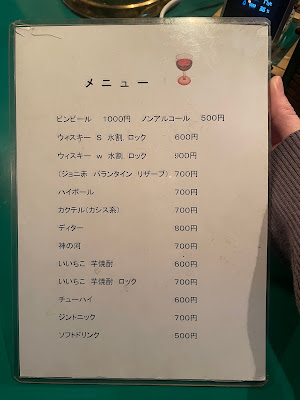 メニュー
ビンビール 1000円 ノンアルコール 500円
ウィスキー S 水割，ロック 600円
ウィスキー w 水割，ロック 900円
(ジョニ赤 バランタイン リザーブ) 700円
ハイボール 700円
カクテル(カシス系) 700円
ディター 800円
神の河 700円
いいちこ 芋焼酎 600円
いいちこ 芋焼酎 ロック 700円
チューハイ 600円
ジントニック 700円
ソフトドリンク 500円